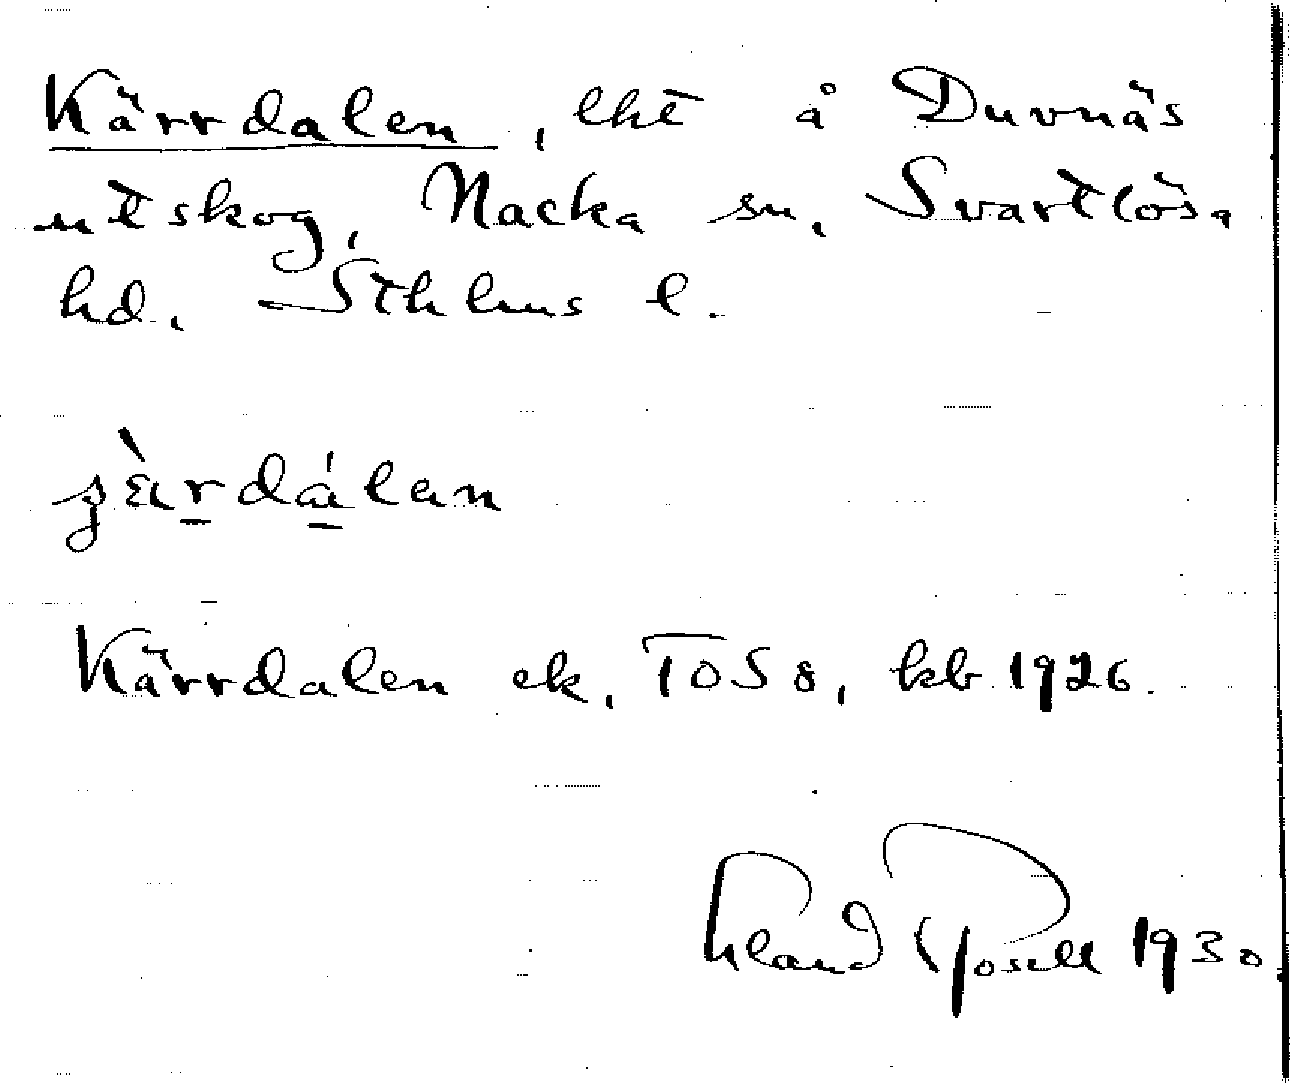 Kärrdalen, lht å Duvnäs
utskog, Nacka sn, Svartlösa
hd, Sthlms l.
Kärrdalen ek, TOS 8, kb 1926.
Rosell 1930